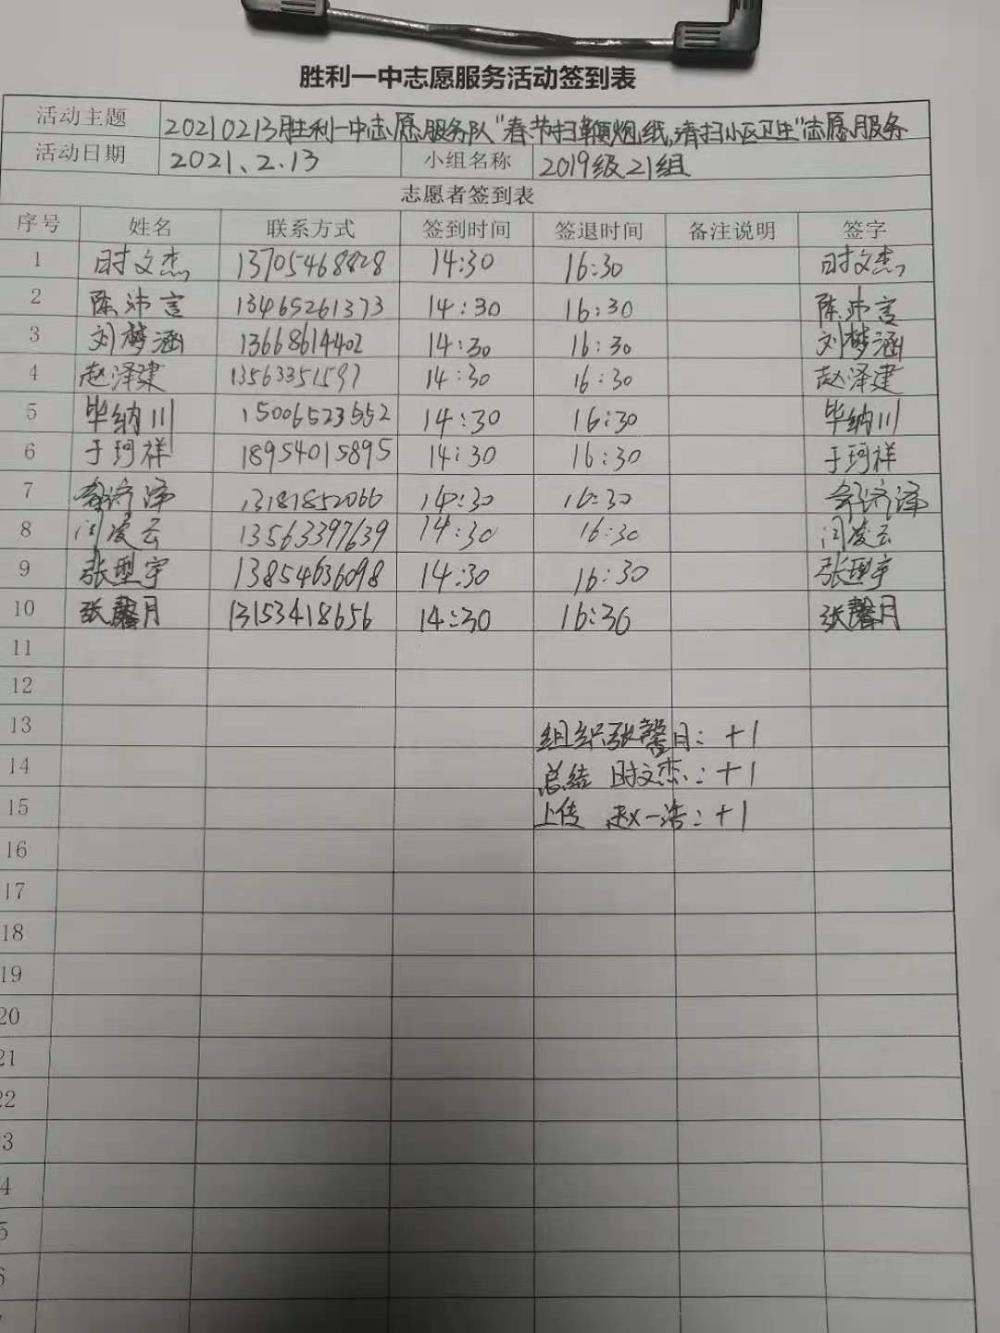 胜利一中志愿服务活动签到表
活动主题 20210213胜利一中志愿服务队"春节扫鞭炮纸,清扫小区卫生"志愿服务
活动日期 2021.2.13 小组名称 2019级21组
志愿者签到表
序号 姓名 联系方式 签到时间 签退时间 备注说明 签字
1 时文杰 13705468828 14:30 16:30 时文杰
2 陈沛言 13465261373 14:30 16:30 陈沛言
3 刘梦涵 13668614402 14:30 16:30 刘梦涵
4 赵泽建 13563351597 14:30 16:30 赵泽建
5 毕纳川 15006523552 14:30 16:30 毕纳川
6 于珂祥 18954015895 14:30 16:30 于珂祥
7 济泽 13181852066 14:30 16:30 济泽
8 闫凌云 13563397639 14:30 16:30 闫凌云
9 张型宇 13854636098 14:30 16:30 张型宇
10 张馨月 13153418656 14:30 16:30 张馨月
11
12
13 组织张馨月:+1
14 总结 时文杰:+1
15 上传 赵一浩:+1
16
17
18
19
20
21
22
3
4
5
6